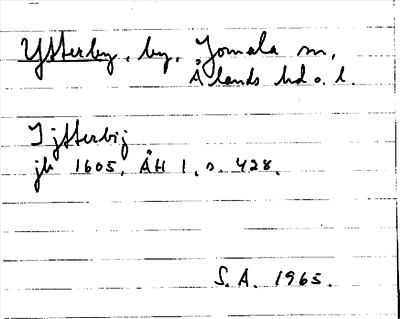 Ytterby, by, Jomala sn,
Ålands hd o. l.
I jtterbij
jb 1605. ÅH 1, s. 428.
S.A. 1965.